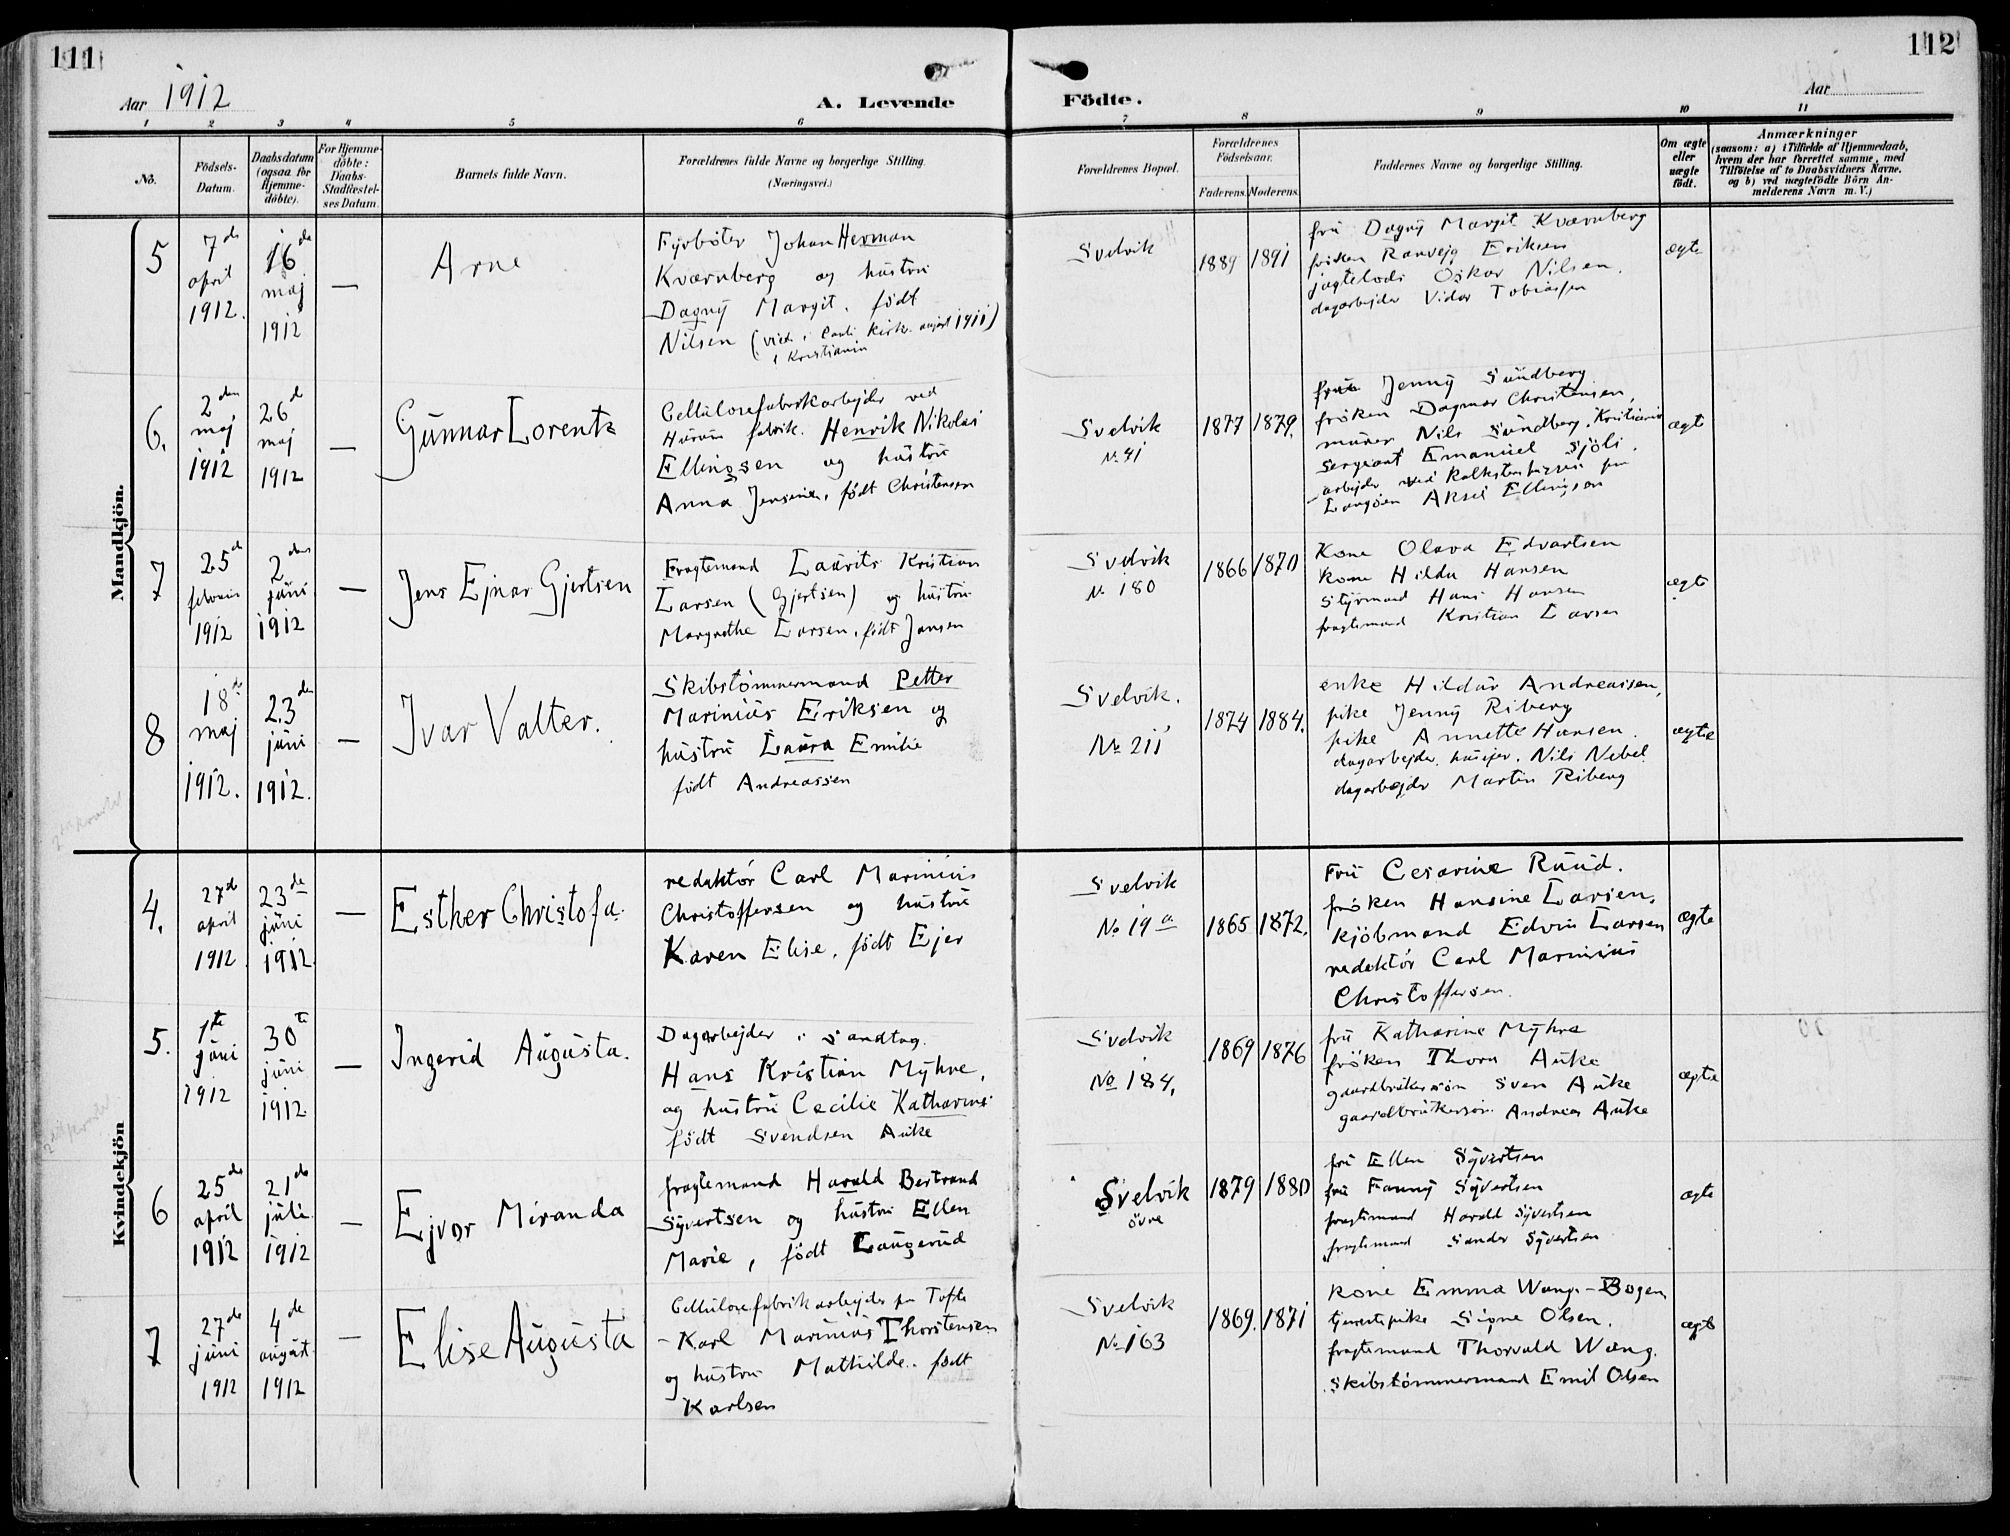 111
112
Aar 1912
A. Levende
Födte.
Aar
1 2 3 4 5 6 7 8 9 10 11
No.
Födsels-
Datum.
Daabsdatum
(ogsaa for
Hjemme-
döbte).
For Hjemme-
döbte:
Daabs-
Stadfæstel-
ses Datum.
Barnets fulde Navn.
Forældrenes fulde Navne og borgerlige Stilling.
(Næringsvei.)
Forældrenes Bopæl.
Forældrenes
Födselsaar.
Faderens.
Moderens.
Faddernes Navne og borgerlige Stilling.
Om ægte
eller
uægte
födt.
Anmærkninger
(saasom: a) i Tilfælde af Hjemmedaab,
hvem der har forrettet samme, med
Tilföielse af to Daabsvidners Navne.
og b) ved uægtefödte Börn An-
melderens Navn m. V.)
Mandkjön.
5
7de
april
1912.
16de
maj
1912
—
Arne
Fyrbøter Johan Herman
Kværnberg og hustru
Dagny Margit, født
Nilsen (viet i Pauli kirke august 1911)
i Kristiania
Svelvik
1889
1891
fru Dagny Margit Kværnberg
frøken Ranveig Eriksen
jagtelods Oskar Nilsen.
dagarbejder Vidar Tobiassen
ægte
6.
2den
maj
1912
26de
maj
1912
—
Gunnar Lorentz
Cellulosefabrikarbejder ved
Hurum fabrik. Henrik Nikolai
Ellingsen og hustru
Anna Jensine, født Christensen
Svelvik
No 41
1877
1879.
frue Jenny Sundberg
frøken Dagmar Christensen,
murer Nils Sundberg, Kristiania
sergeant Emanuel Sjöli.
arbejder ved
Langøen Aksel Ellingsen
ægte
7
25de
februar
1912
2den
juni
1912
—
Jens Ejnar Gjertsen
Fragtemand Laurits Kristian
Larsen (Gjertsen) og hustru
Margrethe Larsen, født Jansen
Svelvik
No 180
1866
1870
Kone Olava Edvartsen
Kone Hilda Hansen
Styrmand Hans Hansen
fragtemand Kristian Larsen
ægte
8
18de
maj
1912.
23de
juni
1912.
—
Ivar Valter.
Skibstømmermand Petter
Marinius Eriksen og
hustru Laura Emilie
født Andreassen
Svelvik.
No 211
1874
1884.
enke Hildur Andreassen,
pike Jenny Riberg
pike Annette Hansen.
dagarbejder, husejer. Nils Nebel
dagarbejder Martin Riberg
ægte
Kvindekjön
4.
27de
april
1912
23de
juni
1912.
—
Esther Christofa.
redaktør Carl Marinius
Christoffersen og hustru
Karen Elise, født Ejer
Svelvik
No 19 a
1865
1872.
Fru Cesarine Ruud.
frøken Hansine Larsen,
kjøbmand Edvin Larsen
redaktør Carl Marinius
Christoffersen.
ægte
5.
1ste
juni
1912
30te
juni
1912.
—
Ingerid Augusta.
Dagarbejder i Sandtag.
Hans Kristian Myhre,
og hustru Cecilie Katharine
født Svendsen Auke
Svelvik
No 184,
1869
1876
fru Katharine Myhre
frøken Thora Auke
gaardbrukersøn Sven Auke
gaardbrukersøn. Andreas Auke
ægte
6
25de
april
1912
21de
juli
1912
—
Ejvor Miranda
fragtemand Harald Bertrand
Syvertsen og hustru Ellen
Marie, født Laugerud
Svelvik
övre
1879
1880
fru Ellen Syvertsen
fru Fanny Syvertsen
fragtemand Harald Syvertsen
fragtemand Sander Syvertsen
ægte
7
27de
juni
1912
4de
august
1912
—
Elise Augusta
Cellulosefabrikarbejder paa Tofte
– Karl Marinius Thorstensen
og hustru Mathilde.. født
Karlsen
Svelvik
No 163
1869.
1871
Kone Emma Wang – Bogen
tjenestepike Signe Olsen.
fragtemand Thorvald Wang.
Skibstømmermand Emil Olsen
ægte